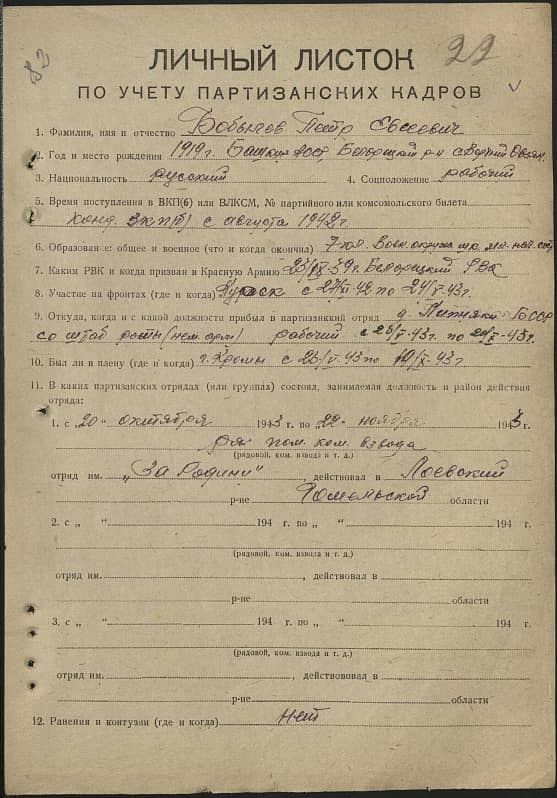 22
ЛИЧНЫЙ ЛИСТОК
ПО УЧЕТУ ПАРТИЗАНСКИХ КАДРОВ
1. Фамилия, имя и отчество Петр Евсеевич
2. Год и место рождения 1919 г.
3. Национальность русский 4. Соцположение рабочий
5. Время поступления в ВКП(б) или ВЛКСМ, № партийного или комсомольского билета
Канд. ВКП(б) с августа 1942 г.
6. Образование: общее и военное (что и когда окончил) 7 кл.
7. Каким РВК и когда призван в Красную Армию Белорецкий РВК
8. Участие на фронтах (где и когда) Курск с по
9. Откуда, когда и с какой должности прибыл в партизанкий отряд д. БССР
со штаб роты (нем. арм) рабочий с по
10. Был ли в плену (где и когда) г. Кромы с по
11. В каких партизанских отрядах (или группах) состоял, занимаемая должность и район действия
отряда:
1. с „20" октября 1943 г. по „22" ноября 1943
пом. ком. взвода
(рядовой, ком. взвода и т. д.)
отряд им. „За Родину" , действовал в Лоевский
р-не Гомельской области
2. с „ " 194 г. по „ " 194 г.
(рядовой, ком. взвода и т. д.)
отряд им. , действовал в
р-не области
3. с „ " 194 г. по „ " 194 г.
(рядовой, ком. взвода и т. д.)
отряд им. , действовал в
р-не области
12. Ранения и контузии (где и когда) нет